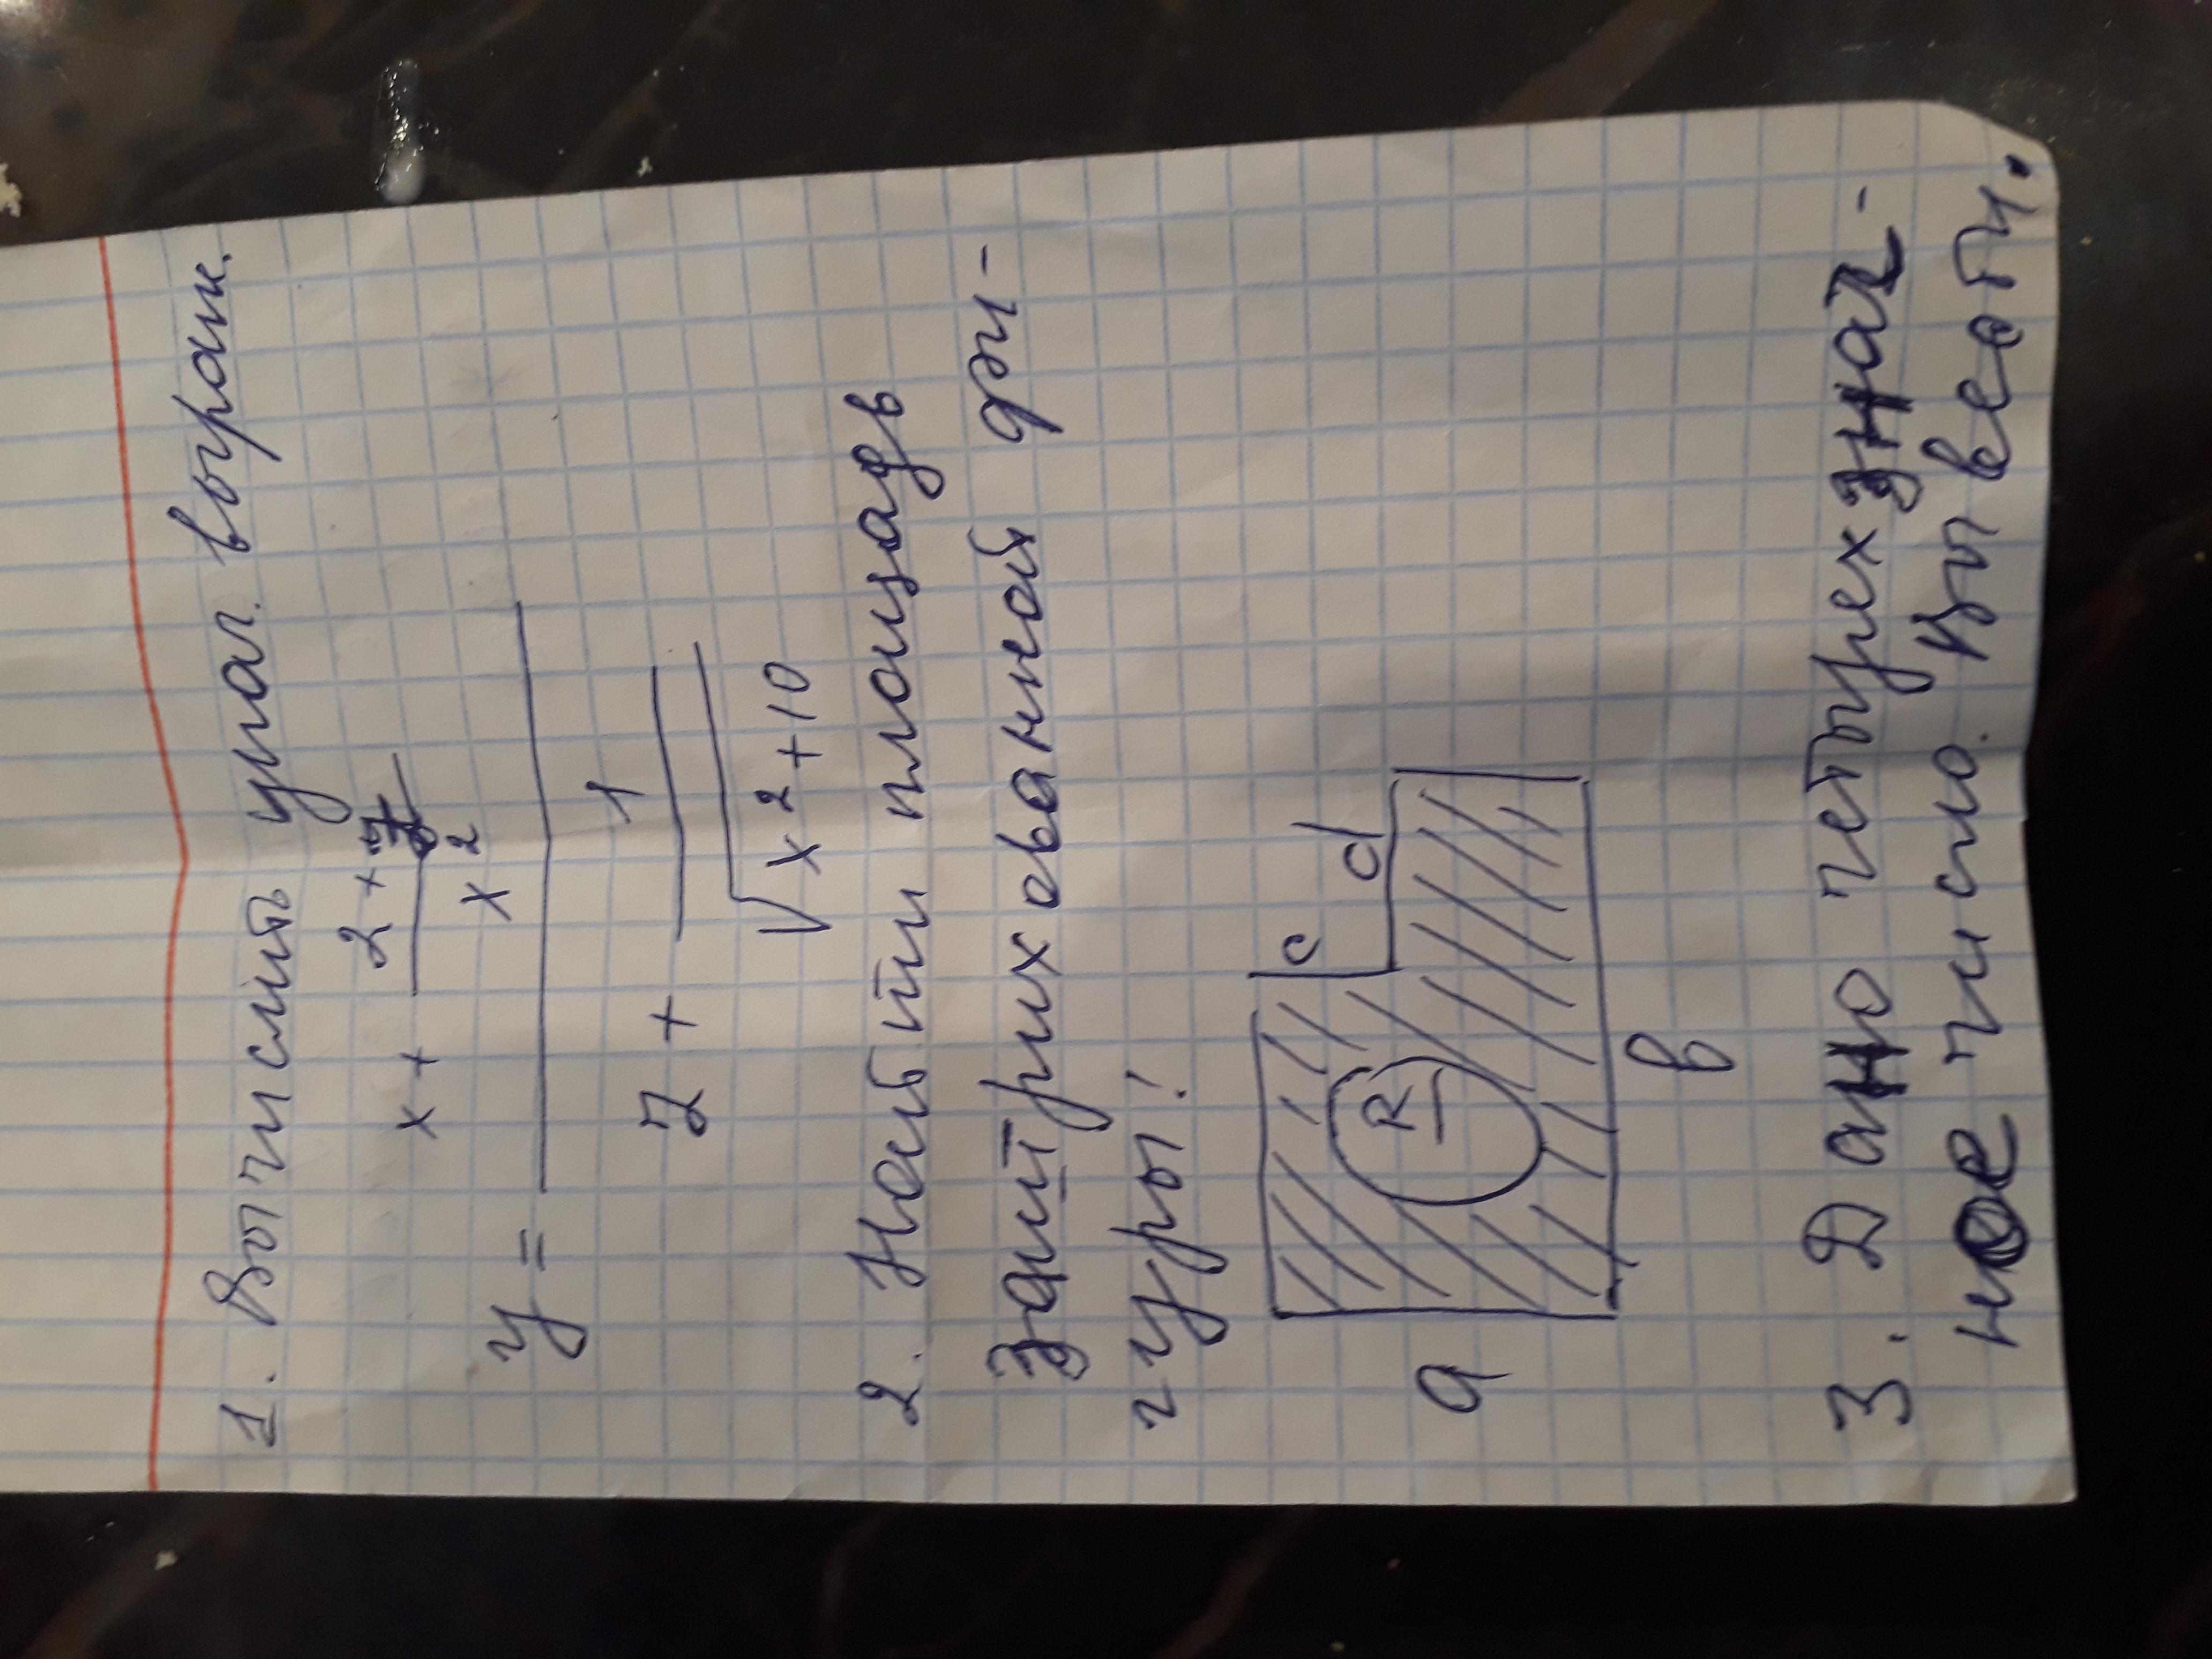 1. Вычислить упаг. выраж.
y = (x + (2 + y) / x²) / (7 + 1 / √(x² + 10))
2. Найти площадь
заштрихованной фи-
гуры!
c
d
R
a
b
3. Дано четырехзнач-
ное число. Вывести.